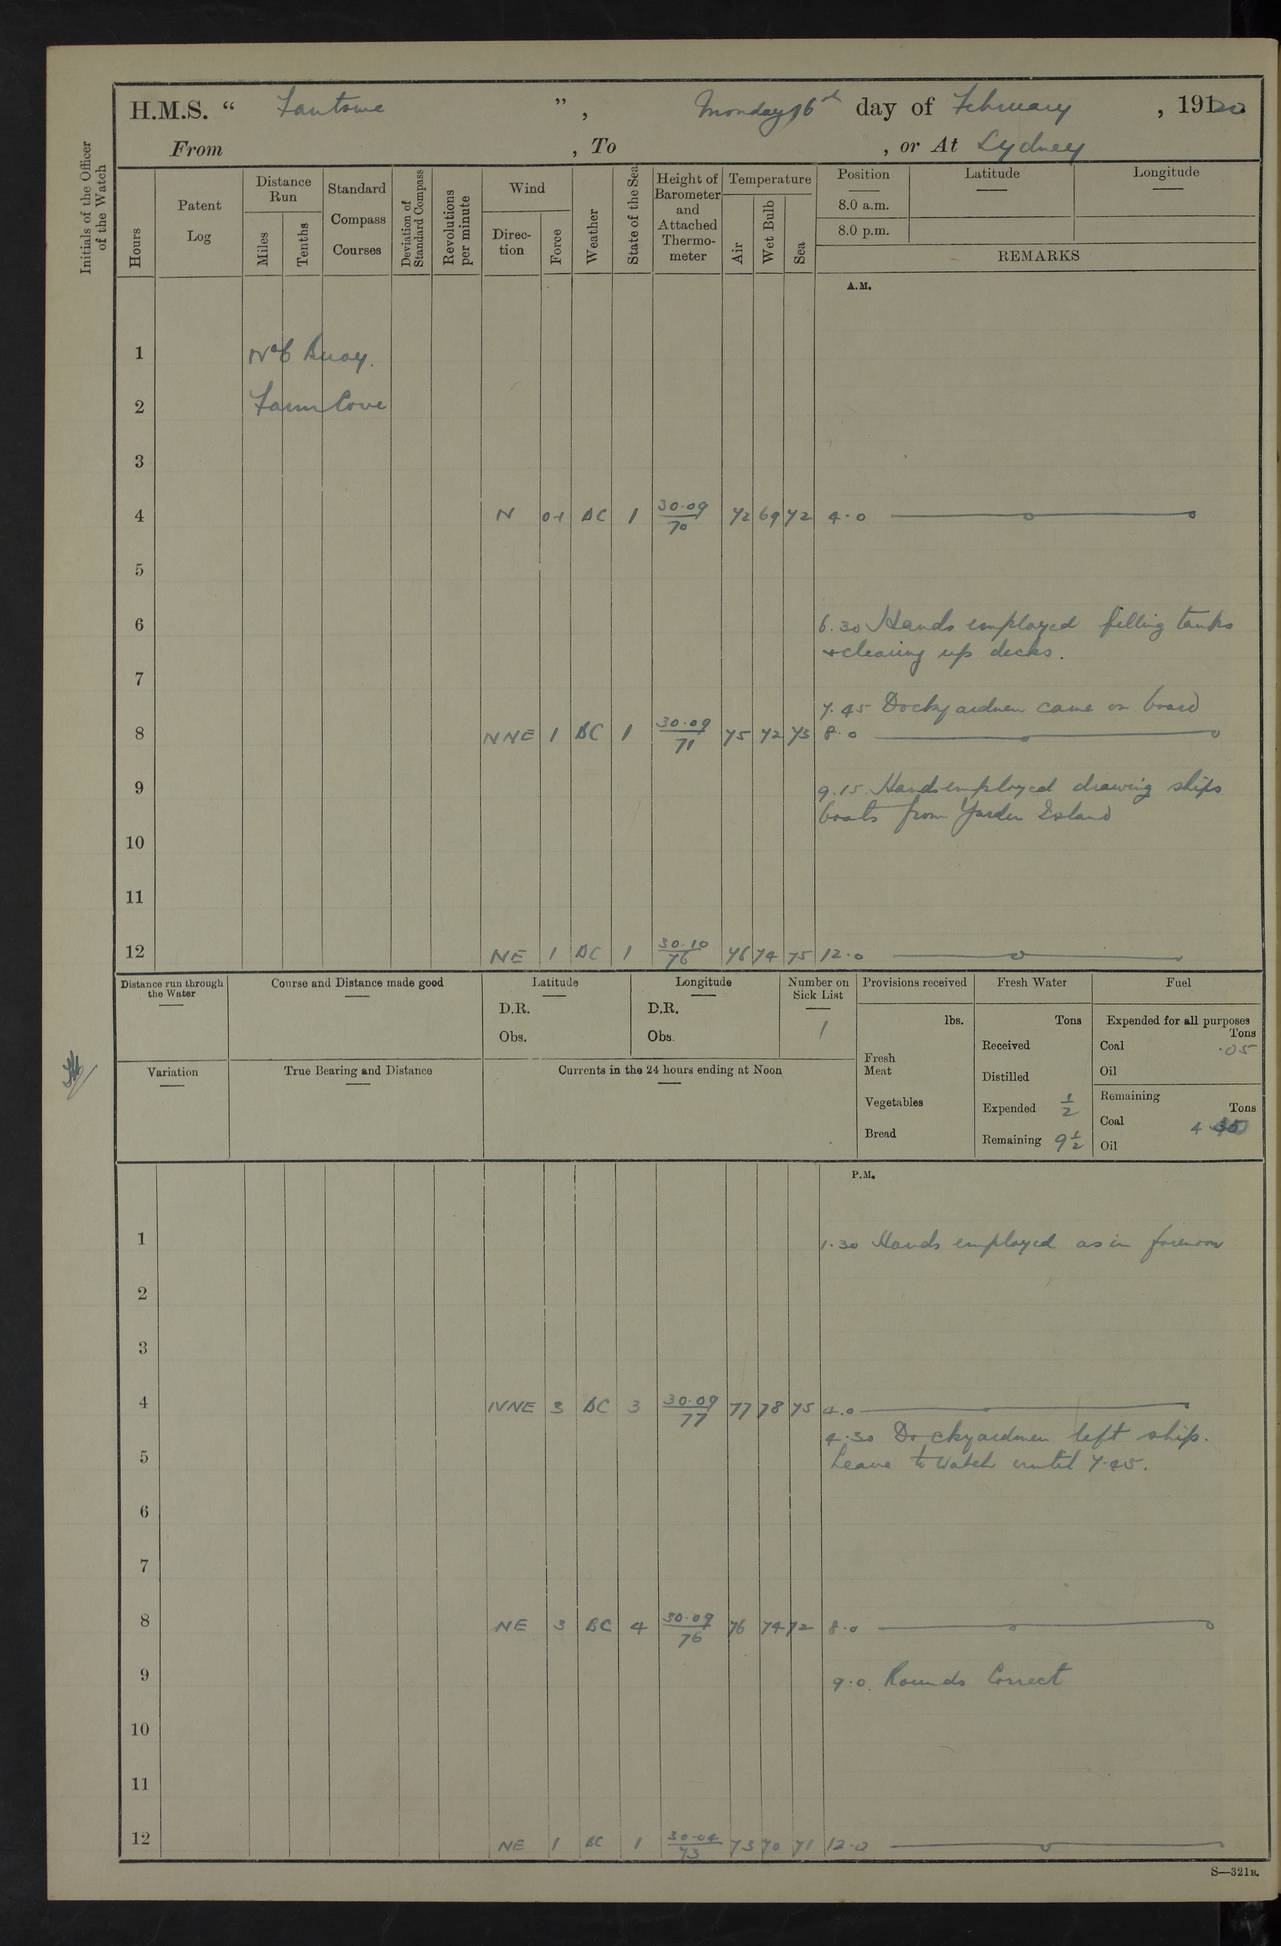 H.M.S. “ Fantome ” , Monday 16th day of February , 1920
From , To , or At Sydney
Initials of the Officer of the Watch
Hours
Patent Log
Distance Run
Miles
Tenths
Standard Compass Courses
Deviation of Standard Compass
Revolutions per minute
Wind
Direction
Force
Weather
State of the Sea
Height of Barometer and Attached Thermometer
Temperature
Air
Wet Bulb
Sea
Position Latitude Longitude
8.0 a.m.
8.0 p.m.
REMARKS
A.M.
1 No 6 Buoy.
2 Farm Cove
3
4 N 0-1 BC 1 30.09/70 72 69 72 4.0
5
6 6.30 Hands employed filling tanks
& clearing up decks.
7
7.45 Dockyardmen came on board
8 NNE 1 BC 1 30.09/71 75 72 73 8.0
9 9.15 Hands employed drawing ships
boats from Garden Island
10
11
12 NE 1 BC 1 30.10/76 76 74 75 12.0
Distance run through the Water
Course and Distance made good
Latitude
D.R.
Obs.
Longitude
D.R.
Obs.
Number on Sick List
1
Provisions received
lbs.
Fresh Meat
Vegetables
Bread
Fresh Water
Tons
Received
Distilled
Expended 1/2
Remaining 9 1/2
Fuel
Expended for all purposes
Tons
Coal .05
Oil
Remaining
Tons
Coal 4
Oil
Variation
True Bearing and Distance
Currents in the 24 hours ending at Noon
P.M.
1 1.30 Hands employed as in forenoon
2
3
4 NNE 3 BC 3 30.09/77 77 78 75 4.0
4.30 Dockyardmen left ship.
5 Leave to watch until 7.45.
6
7
8 NE 3 BC 4 30.09/76 76 74 72 8.0
9 9.0. Rounds Correct
10
11
12 NE 1 BC 1 30.04/73 73 70 71 12.0
S—321B.